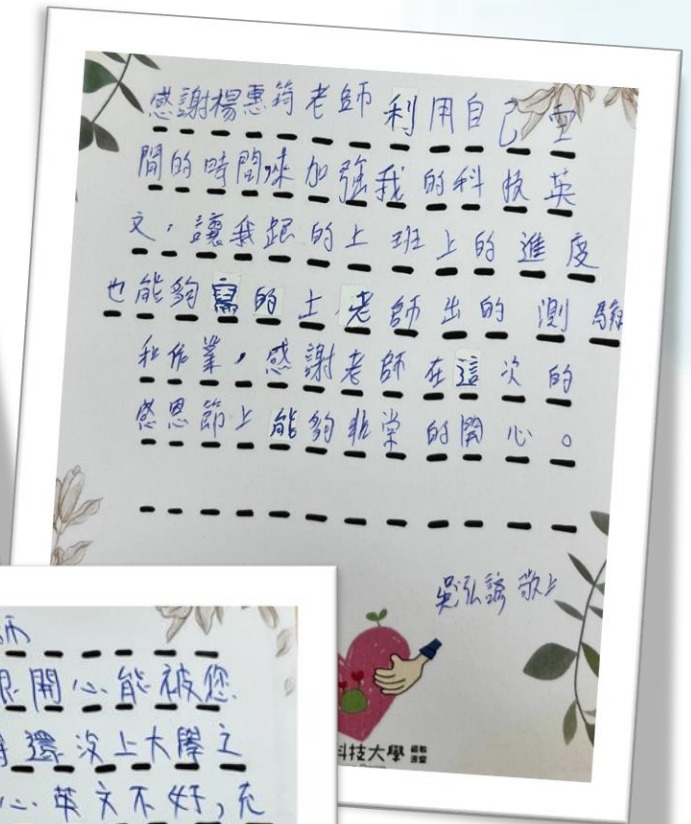 感謝楊惠筠老師利用自己空
閒的時間來加強我的科技英
文,讓我跟的上班上的進度
也能夠寫的上老師出的測驗
和作業,感謝老師在這次的
感恩節上能夠非常的開心。
吳弘諺 敬上
科技大學
師
很開心能被您
還沒上大學之
心英文不好,充